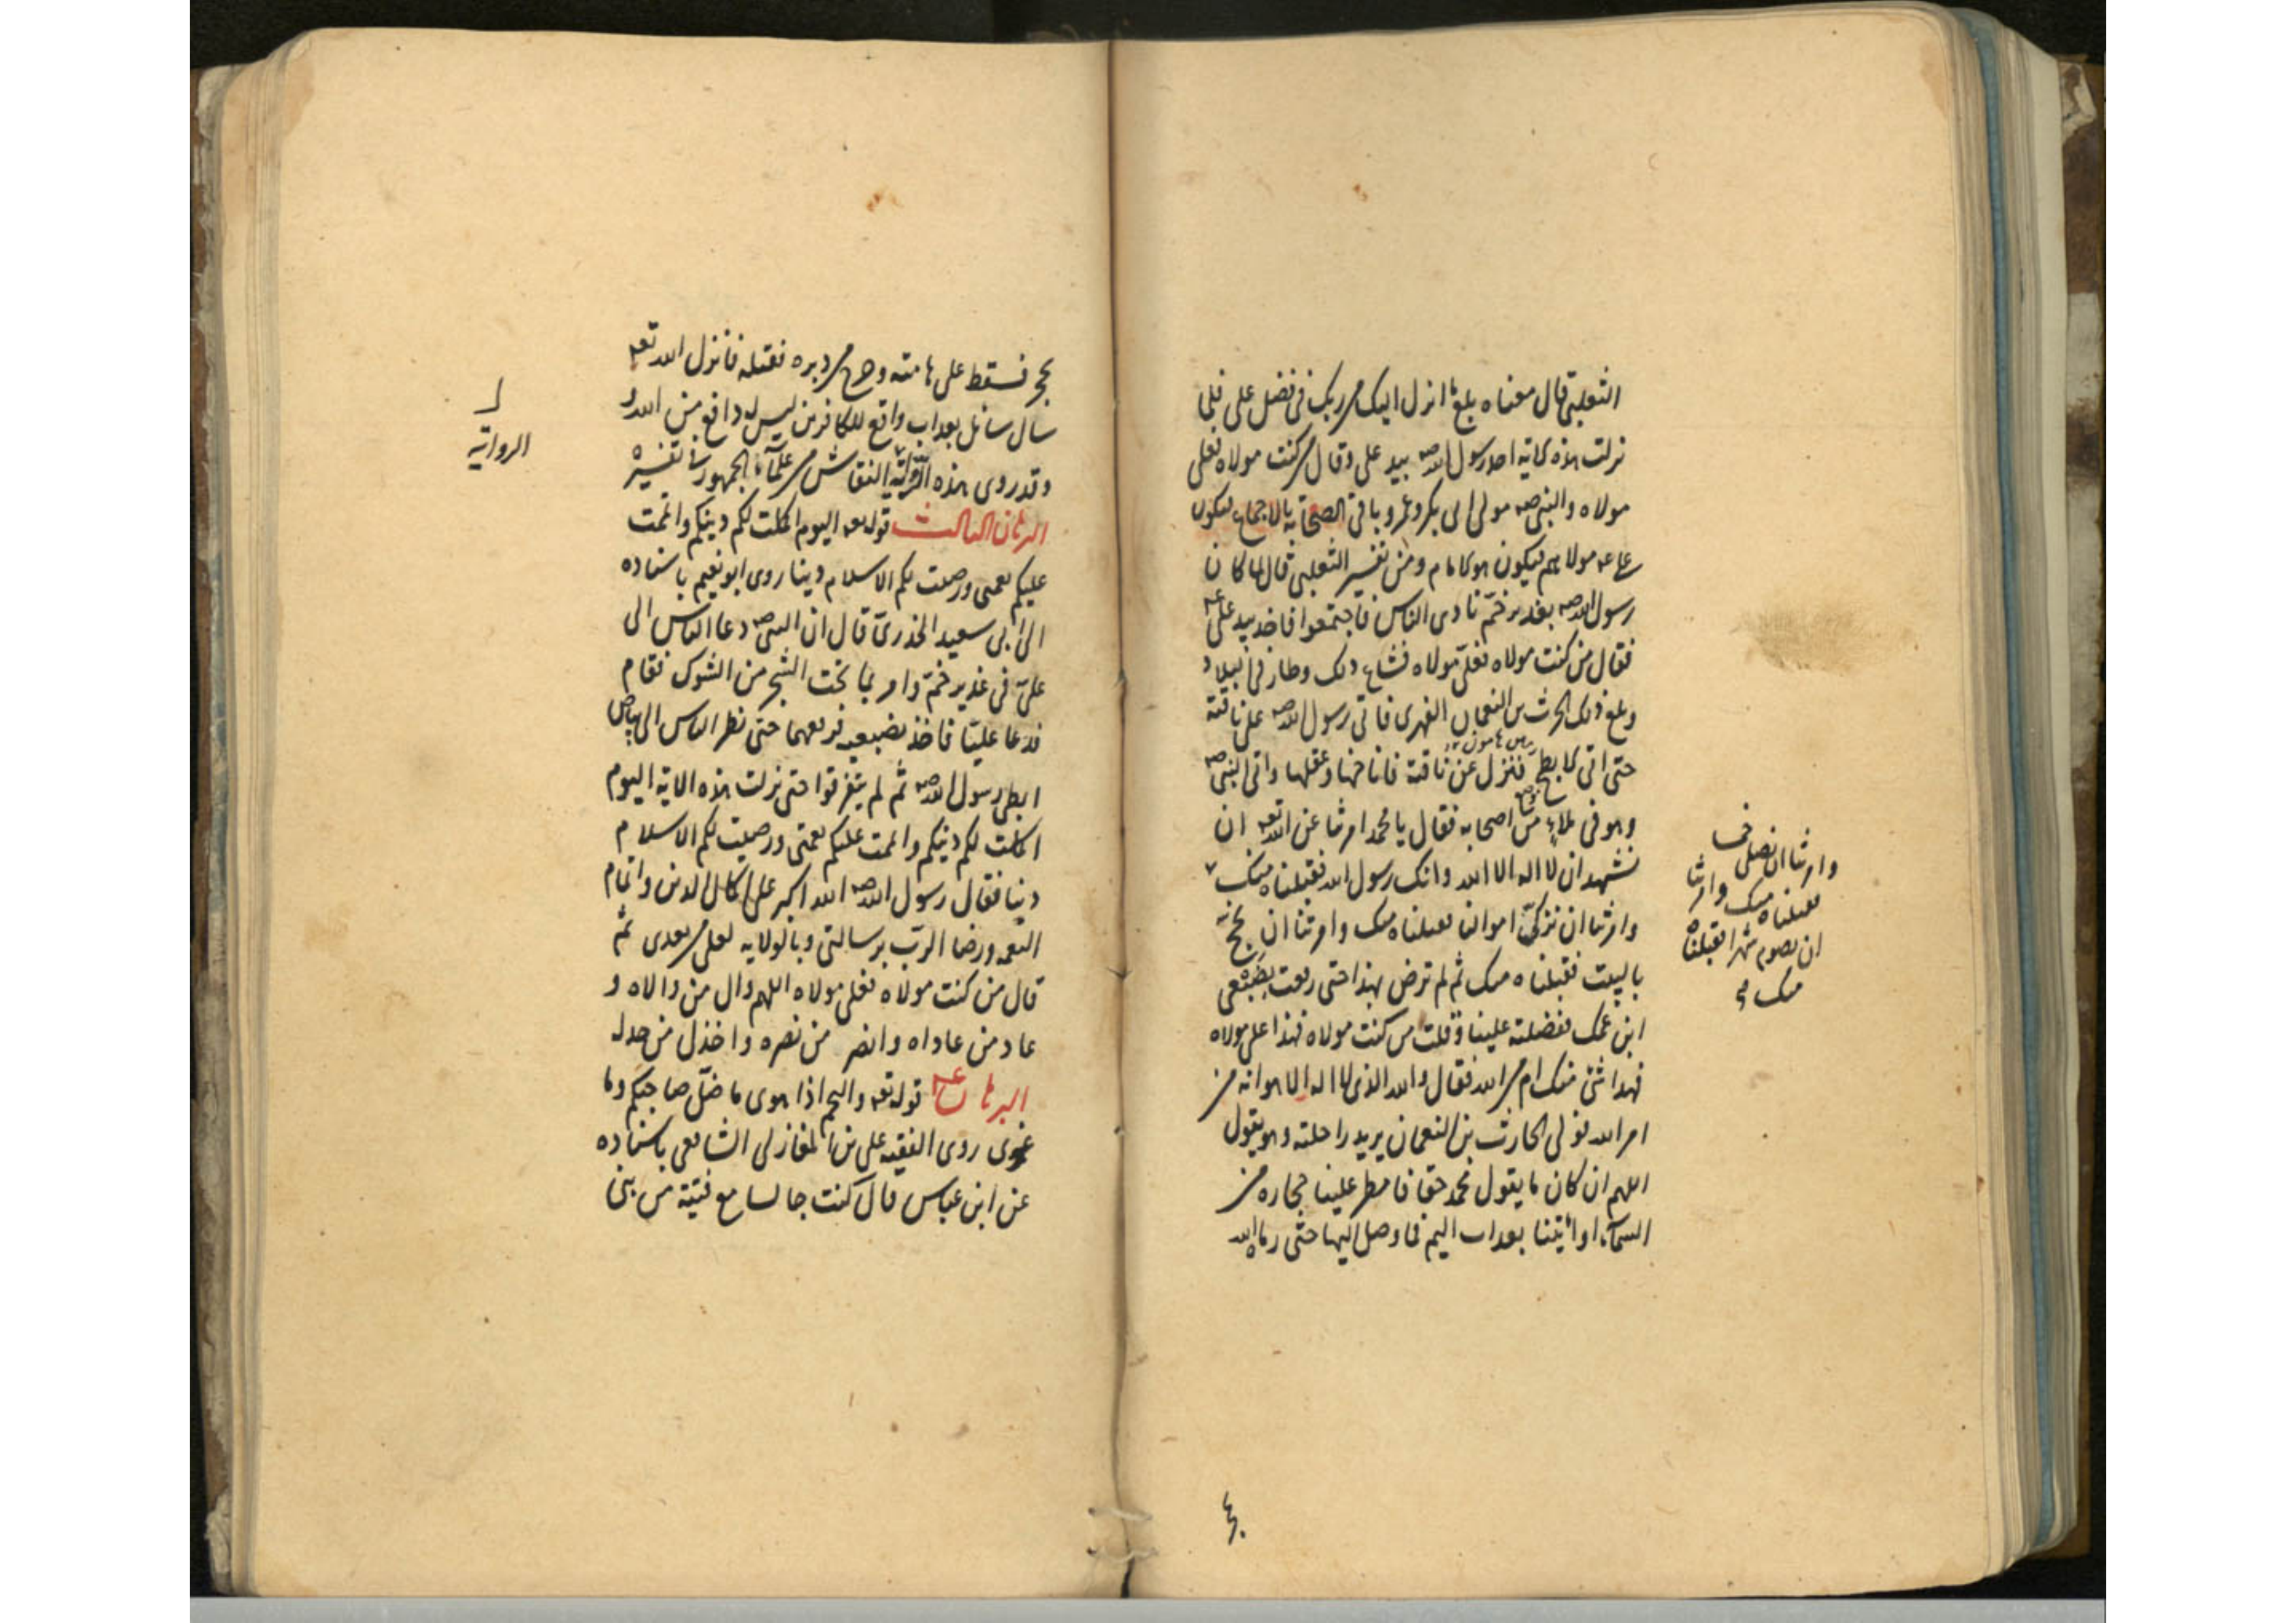 الثعلبى قال معناه بلغ ما انزل اليك من ربك فى فضل على فلما
نزلت هذه الاية اخذ رسول الله صه بيد على وقال من كنت مولاه فعلى
مولاه والنبى صه مولى ابى بكر وعمر وباقى الصحابة بالاجماع فيكون
على عه مولاهم فيكون هو الامام ومن تفسير الثعلبى قال لما كان
رسول الله صه بغدير خم نادى الناس فاجتمعوا فاخذ بيد على عه
فقال من كنت مولاه فعلى مولاه فشاع ذلك وطار فى البلاد
وبلغ ذلك الحرث بن النعمان الفهرى فاتى رسول الله صه على ناقته
حتى اتى الابطح فنزل عن ناقته فاناخها وعقلها واتى النبى صه
وهو فى ملاء من اصحابه فقال يا محمد امرتنا عن الله تعه ان
نشهد ان لا اله الا الله وانك رسول الله فقبلناه منك
وامرتنا ان نزكى اموالنا فقبلناه منك وامرتنا ان نحج
بالبيت فقبلناه منك ثم لم ترض بهذا حتى رفعت بضبعى
ابن عمك ففضلته علينا وقلت من كنت مولاه فهذا على مولاه
فهذا شئ منك ام من الله فقال والله الذى لا اله الا هو انه من
امر الله فولى الحارث بن النعمان يريد راحلته وهو يقول
اللهم ان كان ما يقول محمد حقا فامطر علينا حجارة من
السماء او ائتنا بعذاب اليم فما وصل اليها حتى رماه الله
وامرتنا ان نصلى خمسا
فقبلناه منك وامرتنا
ان نصوم شهرا فقبلناه
منك
بحجر فسقط على هامته وخرج من دبره فقتله فانزل الله تعه
سال سائل بعذاب واقع للكافرين ليس له دافع من الله و
وقد روى هذه الرواية النقاش من علماء الجمهور فى تفسيره
البرهان الثالث قوله تعه اليوم اكملت لكم دينكم واتممت
عليكم نعمتى ورضيت لكم الاسلام دينا روى ابو نعيم باسناده
الى ابى سعيد الخدرى قال ان النبى صه دعا الناس الى
على فى غدير خم وامر بما تحت الشجر من الشوك فقام
فدعا عليا فاخذ بضبعيه فرفعهما حتى نظر الناس الى بياض
ابطى رسول الله صه ثم لم يتفرقوا حتى نزلت هذه الاية اليوم
اكملت لكم دينكم واتممت عليكم نعمتى ورضيت لكم الاسلام
دينا فقال رسول الله صه الله اكبر على اكمال الدين واتمام
النعمة ورضا الرب برسالتى وبالولاية لعلى من بعدى ثم
قال من كنت مولاه فعلى مولاه اللهم وال من والاه و
عاد من عاداه وانصر من نصره واخذل من خذله
البرهان قوله تعه والنجم اذا هوى ما ضل صاحبكم وما
غوى روى الفقيه على بن المغازلى الشافعى باسناده
عن ابن عباس قال كنت جالسا مع فتية من بنى
الرواية